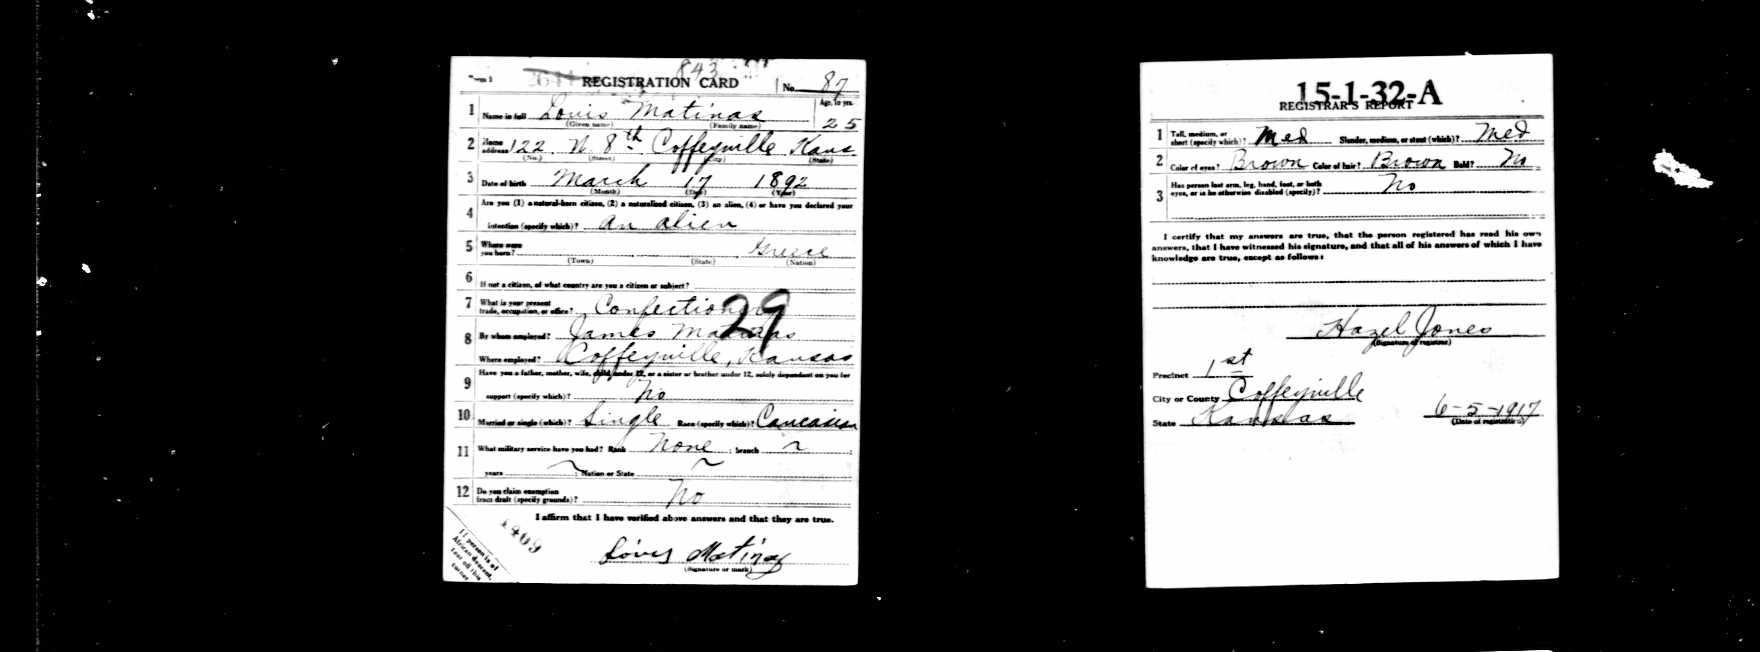 Form 1 2641 REGISTRATION CARD 843 No. 87
1 Name in full Louis Matinas Age, in yrs. 25
(Given name) (Family name)
2 Home address 122 N. 8th Coffeyville Kans
(No.) (Street) (City) (State)
3 Date of birth March 17 1892
(Month) (Day) (Year)
4 Are you (1) a natural-born citizen, (2) a naturalized citizen, (3) an alien, (4) or have you declared your
intention (specify which)? an alien
5 Where were you born? Greece
(Town) (State) (Nation)
6 If not a citizen, of what country are you a citizen or subject?
7 What is your present trade, occupation, or office? Confectioner
29
8 By whom employed? James Matinas
Where employed? Coffeyville, Kansas
9 Have you a father, mother, wife, child under 12, or a sister or brother under 12, solely dependent on you for
support (specify which)? No
10 Married or single (which)? Single Race (specify which)? Caucasian
11 What military service have you had? Rank None ; branch ~ ;
years ~ ; Nation or State ~
12 Do you claim exemption from draft (specify grounds)? No
I affirm that I have verified above answers and that they are true.
1409
Louis Matinas
(Signature or mark)
If person is of
African descent,
tear off this
corner
15-1-32-A
REGISTRAR'S REPORT
1 Tall, medium, or short (specify which)? Med Slender, medium, or stout (which)? Med
2 Color of eyes? Brown Color of hair? Brown Bald? No
3 Has person lost arm, leg, hand, foot, or both eyes, or is he otherwise disabled (specify)? No
I certify that my answers are true, that the person registered has read his own
answers, that I have witnessed his signature, and that all of his answers of which I have
knowledge are true, except as follows:
Hazel Jones
(Signature of registrar)
Precinct 1st
City or County Coffeyville
State Kansas 6-5-1917
(Date of registration)